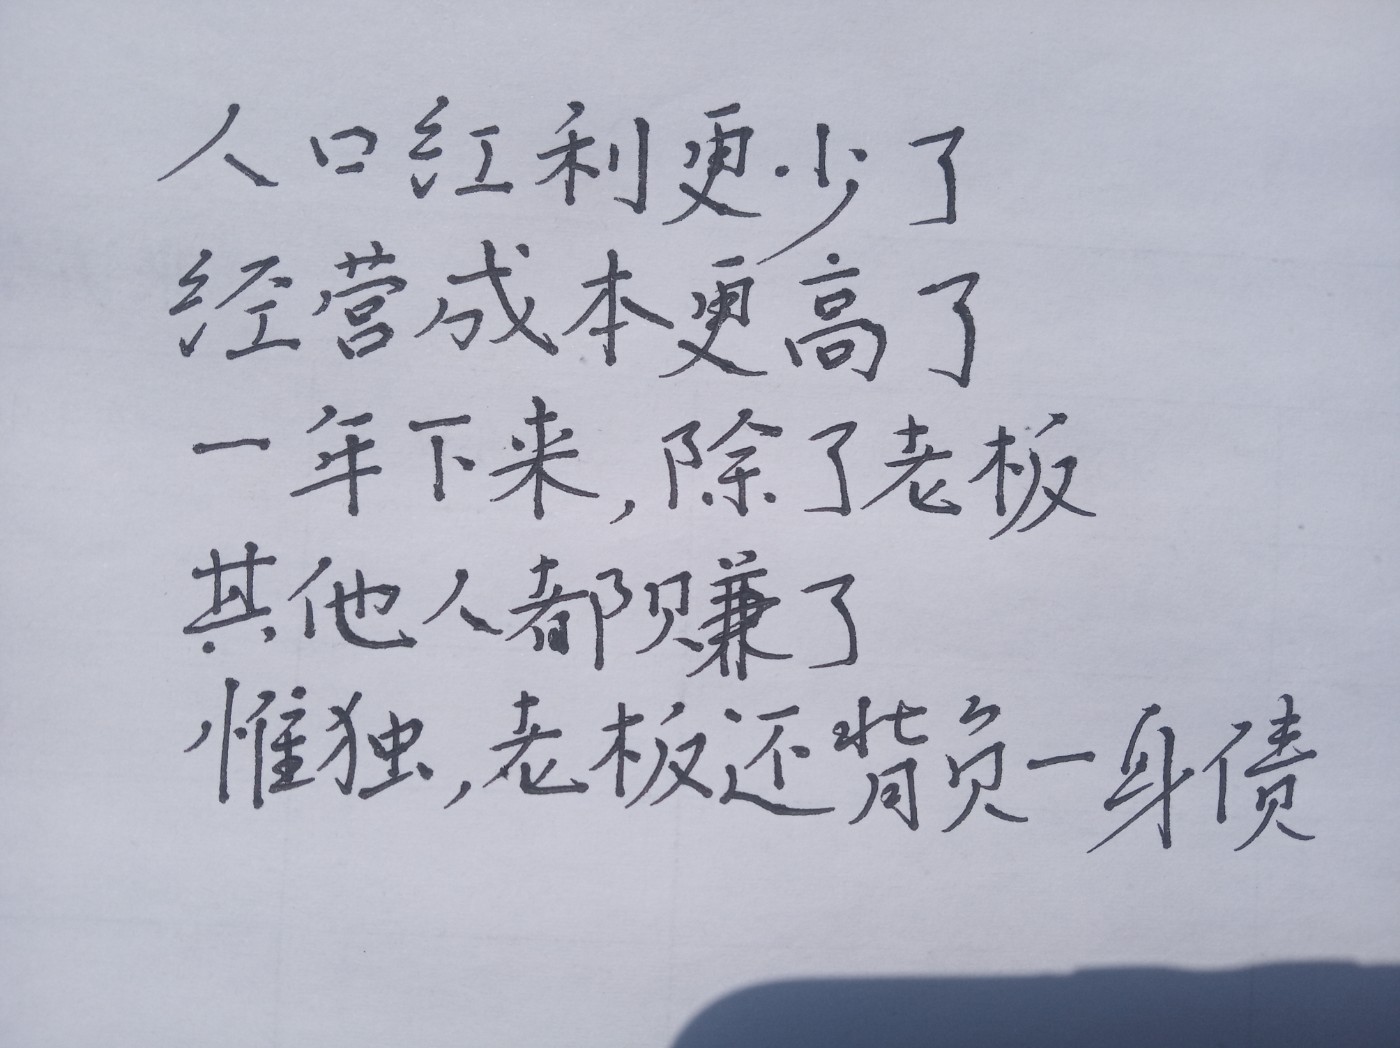 人口红利更少了
经营成本更高了
一年下来,除了老板
其他人都赚了
惟独,老板还背负一身债